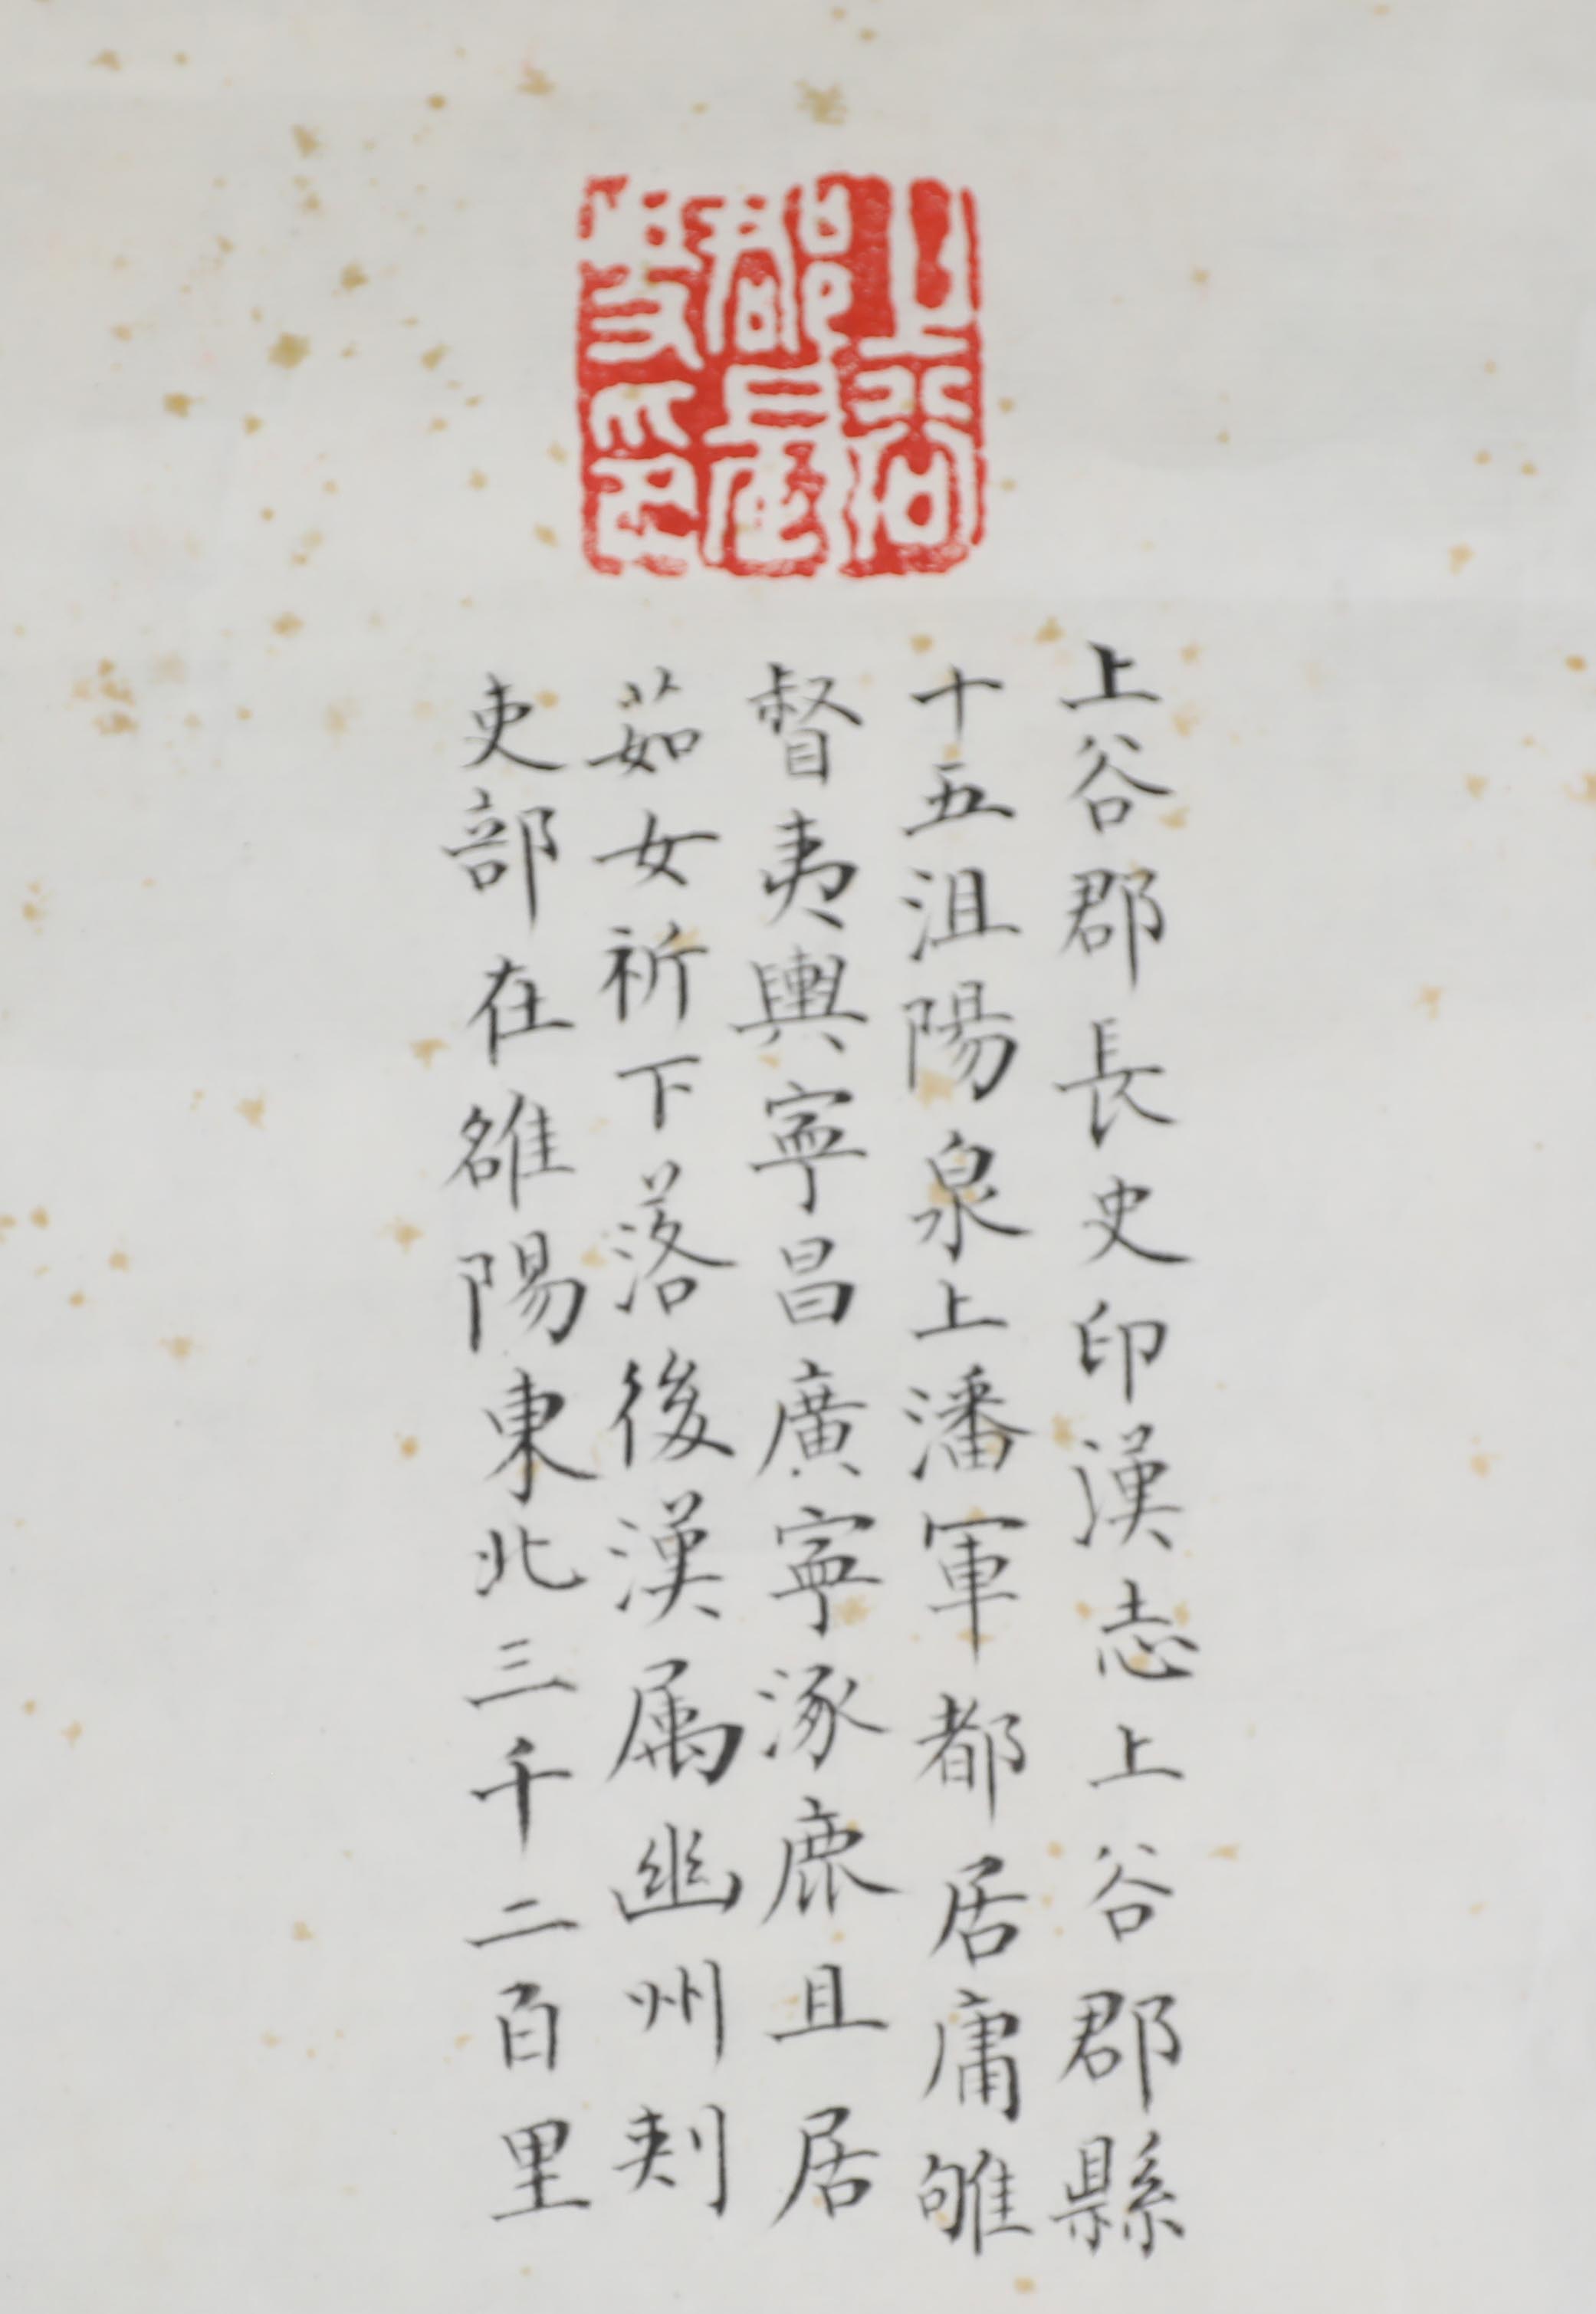 上谷
郡長
史印
上谷郡長史印漢志上谷郡縣
十五沮陽泉上潘軍都居庸雊
瞀夷輿寧昌廣寧涿鹿且居
茹女祈下落後漢属幽州刺
史部在雒陽東北三千二百里